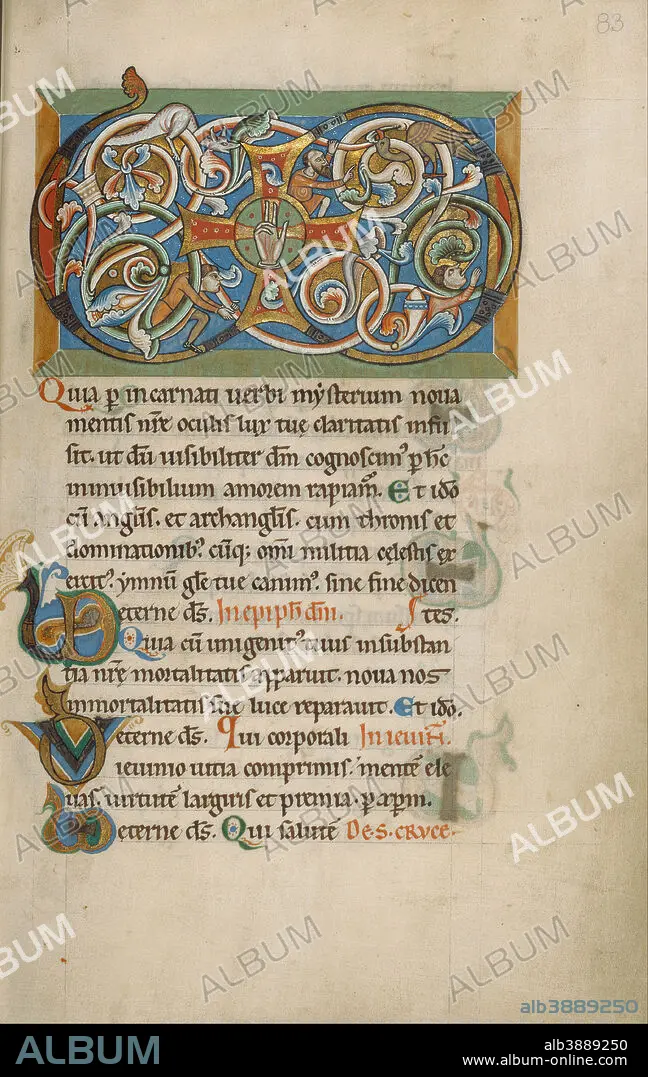 83
Quia p incarnati uerbi mysterium noua
mentis nr̄e oculis lux tuę claritatis infu
sit. ut dū uisibiliter dm̄ cognoscimꝰ p hc̄
inuisibilium amorem rapiam̄. Et id̄o
cū angl̄is. et archangl̄is. cum thronis et
dominationibꝰ cūq; om̄i militia cęlestis ex
ercitꝰ. ymnū gl̄e tue canimꝰ. sine fine dicen
eterne d̄s. In epiph̄ dn̄i. Stes.
Quia cū unigenitꝰ tuus in substan
tia nr̄ę mortalitatis apparuit. noua nos
immortalitatis suę luce reparauit. Et id̄o.
eterne d̄s. Qui corporali In ieiun̄.
ieiunio uitia comprimis. mentē ele
uas. uirtutē largiris et premia. p xp̄m.
eterne d̄s. Qui salutē De. S. CRVCE.
ALBUM
alb3889250
ALBUM
alb3889250
www.album-online.com